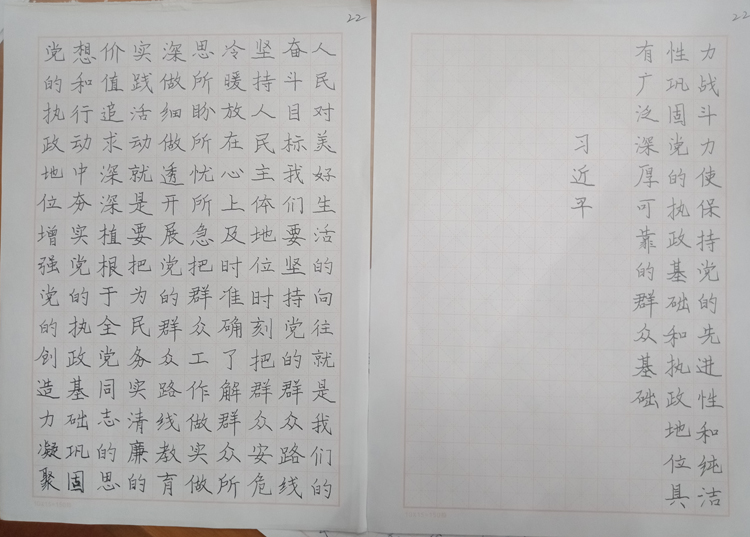 22
人民对美好生活的向往就是我们的
奋斗目标我们要坚持党的群众路线
坚持人民主体地位时刻把群众安危
冷暖放在心上及时准确了解群众所
思所盼所忧所急把群众工作做实做
深做细做透开展党的群众路线教育
实践活动就是要把为民务实清廉的
价值追求深深植根于全党同志的思
想和行动中夯实党的执政基础巩固
党的执政地位增强党的创造力凝聚
22
力战斗力使保持党的先进性和纯洁
性巩固党的执政基础和执政地位具
有广泛深厚可靠的群众基础
习近平